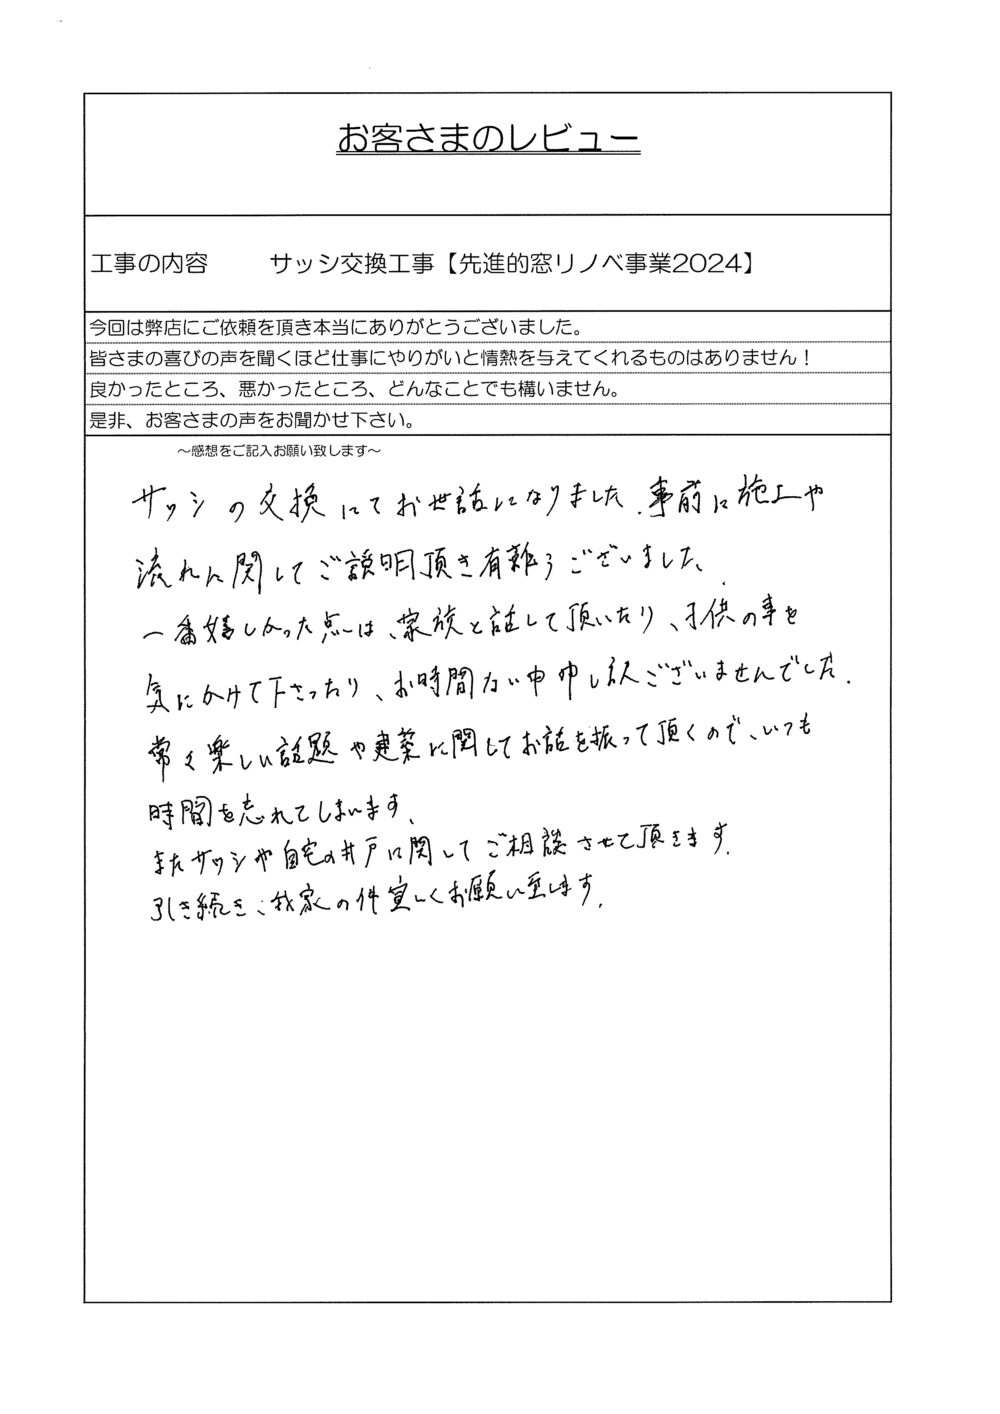 お客さまのレビュー
工事の内容　サッシ交換工事【先進的窓リノベ事業2024】
今回は弊店にご依頼を頂き本当にありがとうございました。
皆さまの喜びの声を聞くほど仕事にやりがいと情熱を与えてくれるものはありません！
良かったところ、悪かったところ、どんなことでも構いません。
是非、お客さまの声をお聞かせ下さい。
～感想をご記入お願い致します～
サッシの交換にてお世話になりました。事前に施工や
流れに関してご説明頂き有難うございました。
一番嬉しかった点は、家族と話して頂いたり、子供の事を
気にかけて下さったり、お時間ない中申し訳ございませんでした。
常々楽しい話題や建築に関してお話を振って頂くので、いつも
時間を忘れてしまいます。
またサッシや自宅の井戸に関してご相談させて頂きます。
引き続き、我家の件宜しくお願い致します。